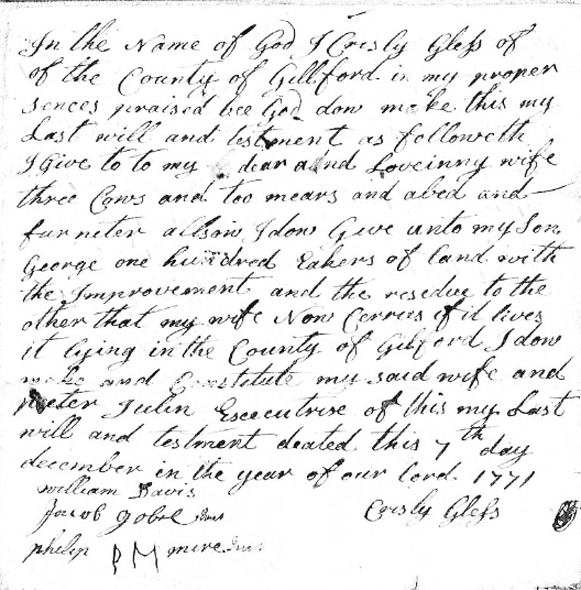 In the Name of God I Crisly Gless of
of the County of Gillford in my proper
sences praised bee God dow make this my
Last will and testment as followeth
I Give to to my dear and Loveinny wife
three Cows and too mears and abed and
furneter allsow I dow Give unto my Son
George one hundred Eakers of land with
the Improvement and the resedue to the
other that my wife Now Cerries if it lives
it lying in the County of Gilford I dow
make and Constitute my said wife and
Peeter Julin Execcutrise of this my Last
will and testment deated this 7th day
december in the year of our lord 1771
William Davis
Jacob Gobel Crisly Gless
philip P M mire